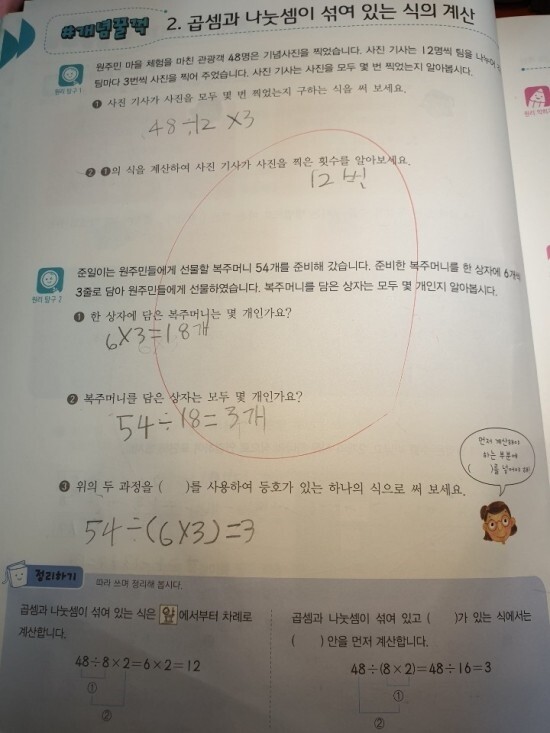 #개념꿀꺽
2. 곱셈과 나눗셈이 섞여 있는 식의 계산
원리 탐구 1
원주민 마을 체험을 마친 관광객 48명은 기념사진을 찍었습니다. 사진 기사는 12명씩 팀을 나누어
팀마다 3번씩 사진을 찍어 주었습니다. 사진 기사는 사진을 모두 몇 번 찍었는지 알아봅시다.
❶ 사진 기사가 사진을 모두 몇 번 찍었는지 구하는 식을 써 보세요.
48÷12 ×3
❷ ❶의 식을 계산하여 사진 기사가 사진을 찍은 횟수를 알아보세요.
12번
원리 탐구 2
준일이는 원주민들에게 선물할 복주머니 54개를 준비해 갔습니다. 준비한 복주머니를 한 상자에 6개씩
3줄로 담아 원주민들에게 선물하였습니다. 복주머니를 담은 상자는 모두 몇 개인지 알아봅시다.
❶ 한 상자에 담은 복주머니는 몇 개인가요?
6×3=18개
❷ 복주머니를 담은 상자는 모두 몇 개인가요?
54÷18=3개
먼저 계산해야
하는 부분에
( )를 넣어야 해!
❸ 위의 두 과정을 ( )를 사용하여 등호가 있는 하나의 식으로 써 보세요.
54÷(6×3)=3
정리하기
따라 쓰며 정리해 봅시다.
곱셈과 나눗셈이 섞여 있는 식은 앞에서부터 차례로
계산합니다.
48÷8×2=6×2=12
①
②
곱셈과 나눗셈이 섞여 있고 ( )가 있는 식에서는
( ) 안을 먼저 계산합니다.
48÷(8×2)=48÷16=3
①
②